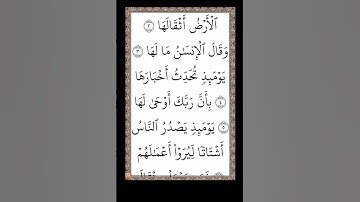 ٱلْأَرْضُ أَثْقَالَهَا ٢
وَقَالَ ٱلْإِنسَٰنُ مَا لَهَا ٣
يَوْمَئِذٍ تُحَدِّثُ أَخْبَارَهَا
٤ بِأَنَّ رَبَّكَ أَوْحَىٰ لَهَا
٥ يَوْمَئِذٍ يَصْدُرُ ٱلنَّاسُ
أَشْتَاتًا لِّيُرَوْا۟ أَعْمَٰلَهُمْ